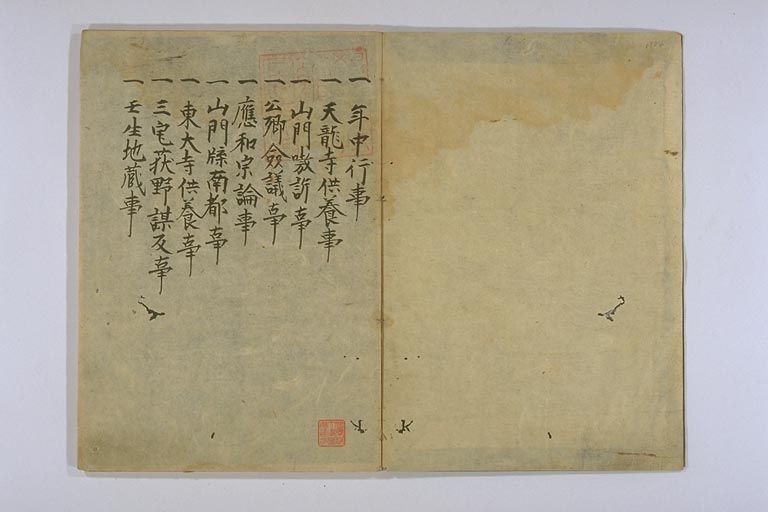 一 年中行事
一 天龍寺供養事
一 山門嗷訴事
一 公卿僉議事
一 應和宗論事
一 山門牒南都事
一 東大寺供養事
一 三宅荻野謀反事
一 壬生地蔵事